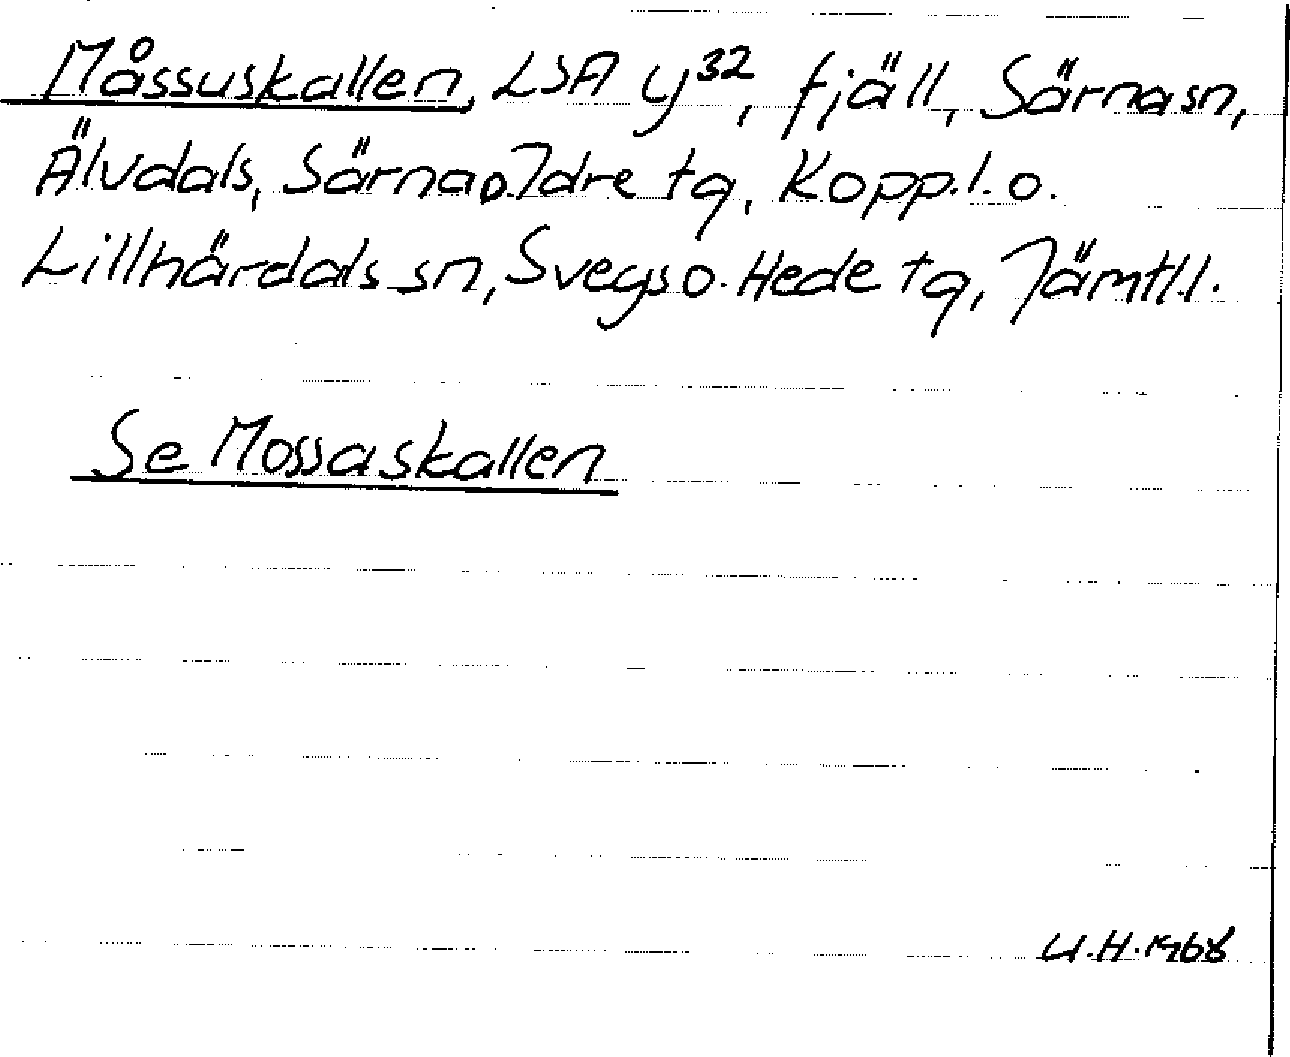 Måssuskallen, LSA y³², fjäll, Särna sn,
Älvdals, Särna o. Idre tg, Kopp. l. o.
Lillhärdals sn, Svegs o. Hede tg, Jämtl.l.
Se Mossaskallen
U.H. 1968